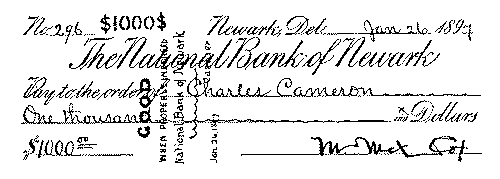 No. 296 $1000$ Newark, Del. Jan 26 1897
The National Bank of Newark
Pay to the order of Charles Cameron
One thousand xx/100 Dollars
$1000 00
GOOD
WHEN PROPERLY INDORSED
National Bank of Newark
Jan. 26, 1897